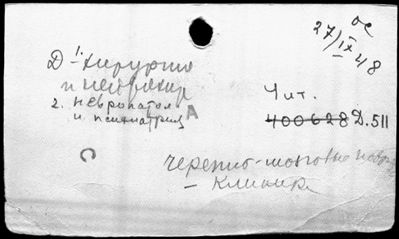 ос
27/IX 48
Д-1. хирургия
и нейрохир
2. невропатол
и психиатрия
А
Чит.
400628 Д.511
С
черепно-мозговые
- клиник